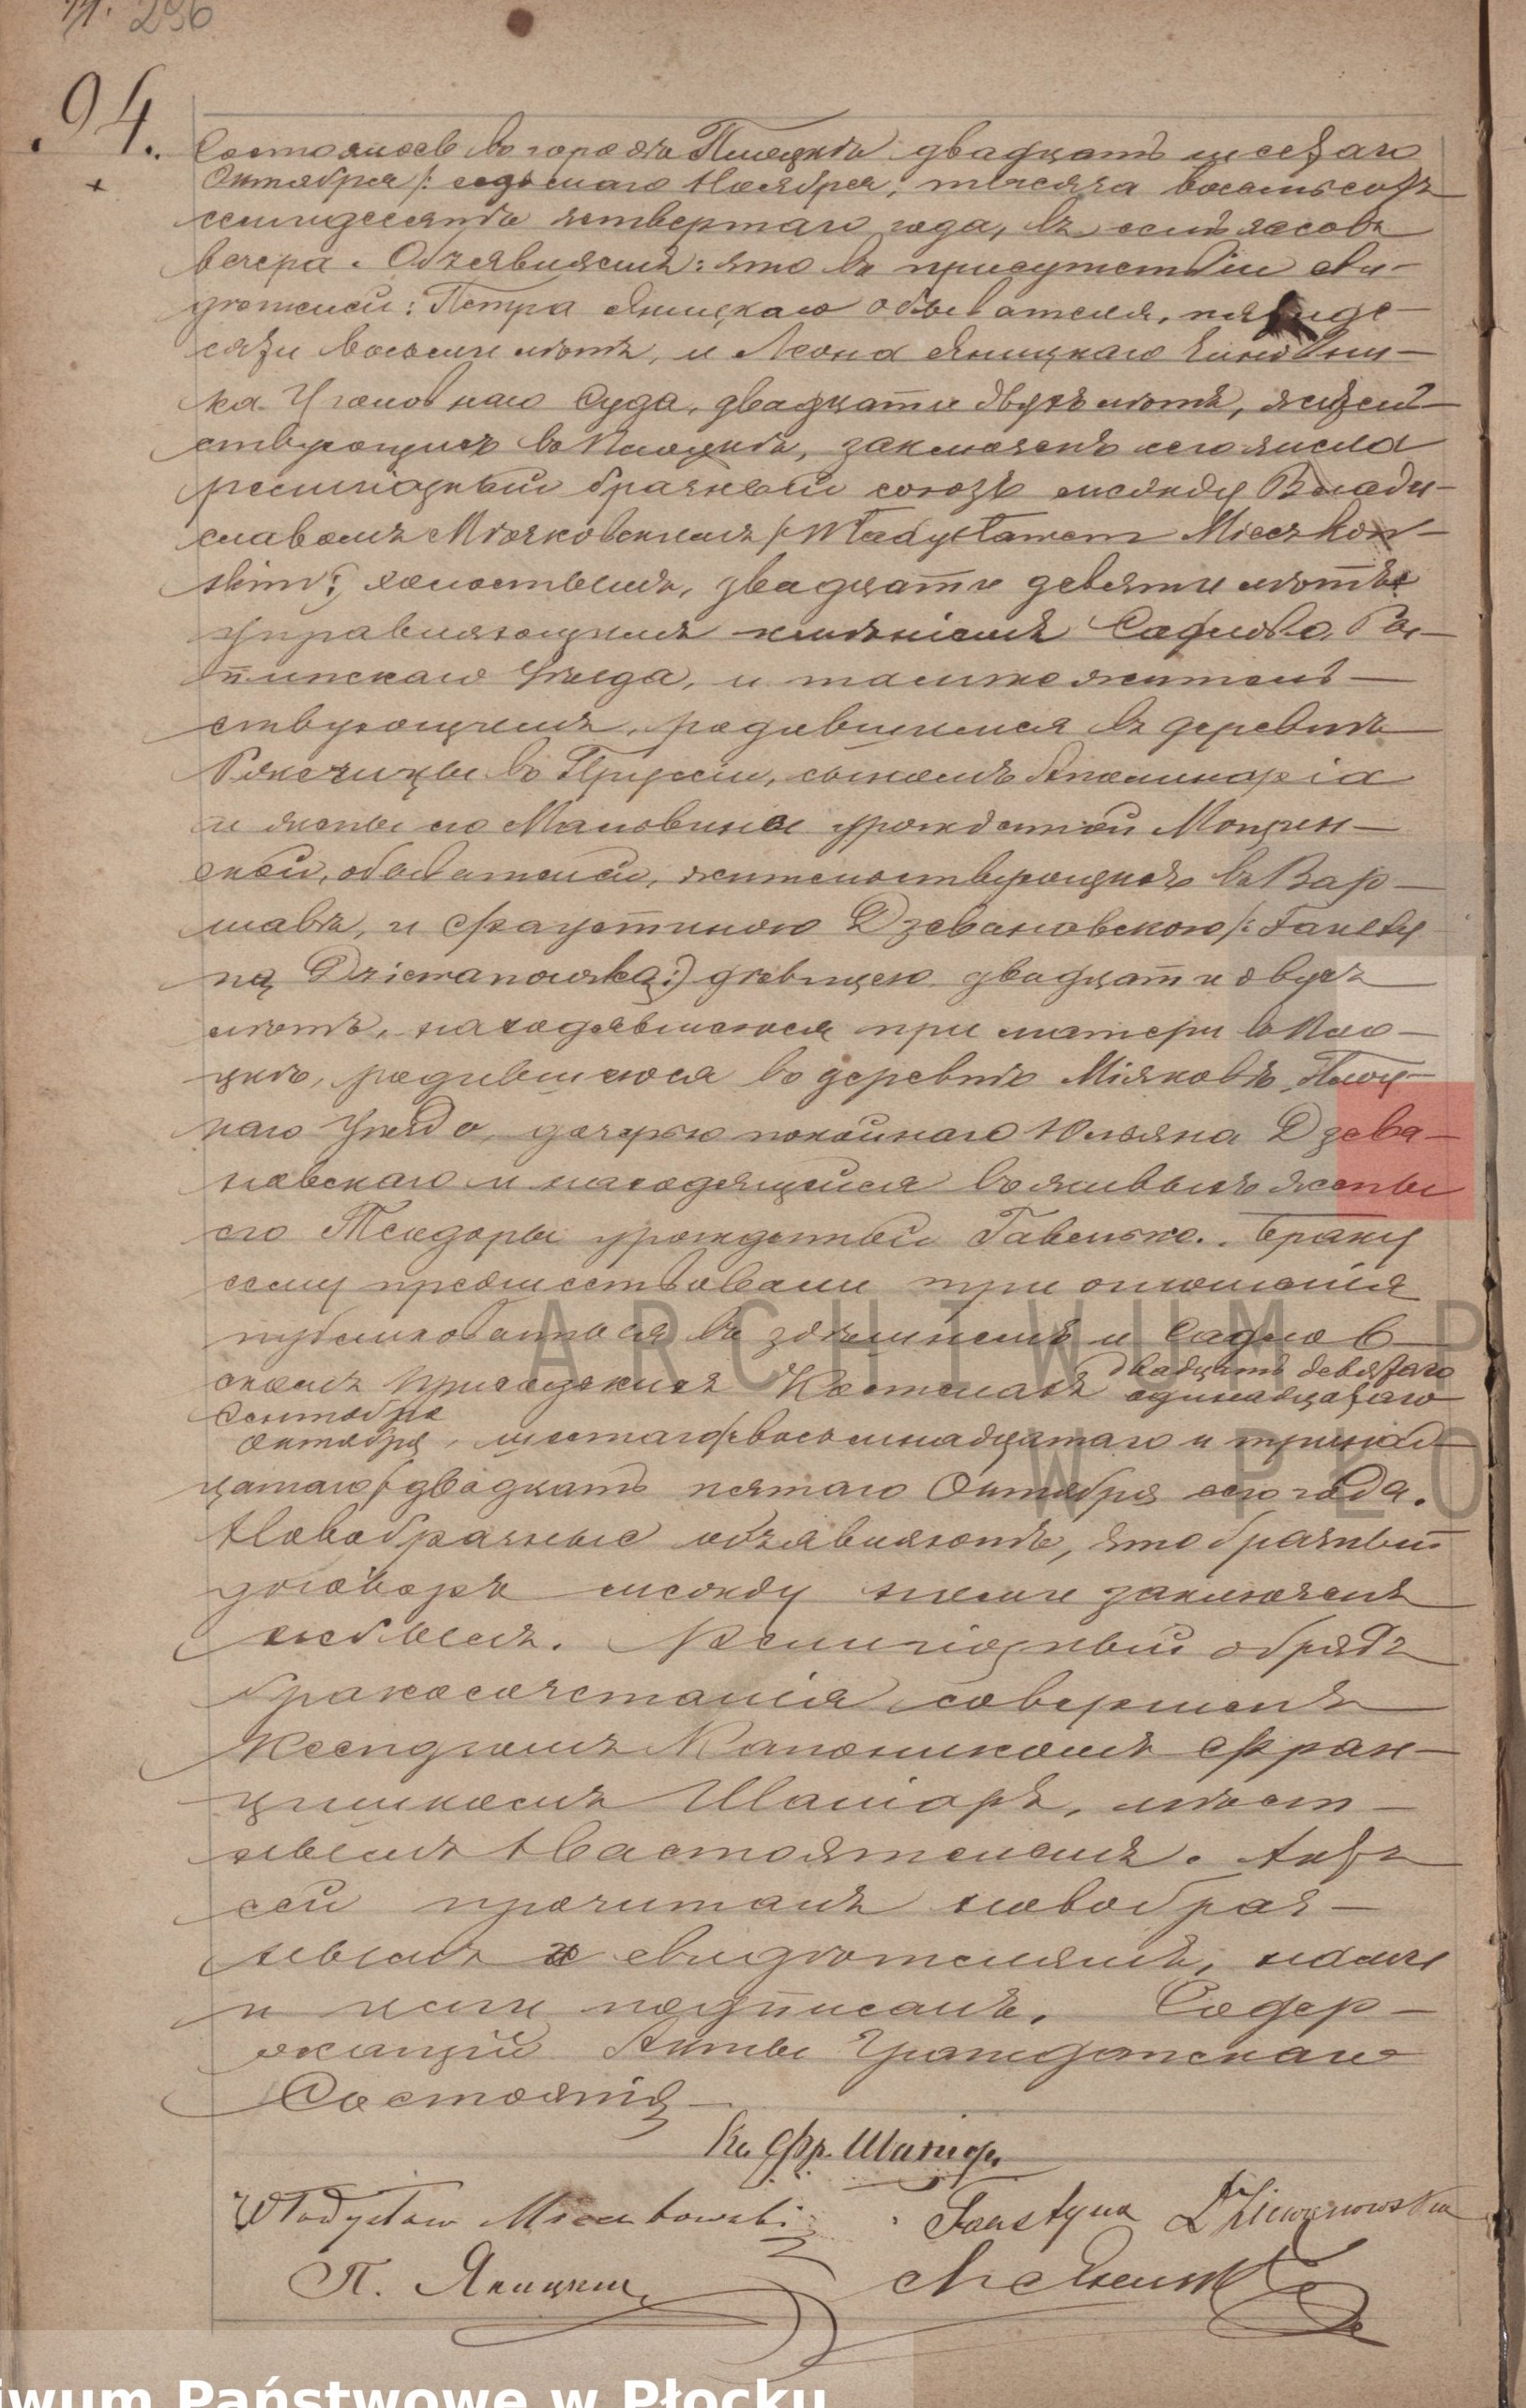 П. 296
94.
Состоялось въ городѣ Плоцкѣ двадцать шестаго
Октября /: седьмаго Ноября, тысяча восемьсотъ
семидесятъ четвертаго года, въ семь часовъ
вечера. Объявляемъ: что въ присутствіи сви-
дѣтелей: Петра Яницкаго обывателя, пятиде-
сяти восьми лѣтъ, и Леона Яницкаго Чинов ни-
ка Уголовнаго Суда, двадцати двухъ лѣтъ, жител-
ствующихъ въ Плоцкѣ, заключенъ сего числа
религіозный брачный союзъ между Влади-
славомъ Мѣчковскимъ /: Władysławem Mieczkow-
skim :/ холостымъ, двадцати девяти лѣтъ
управляющимъ имѣніемъ Садлово, Ры-
пинскаго Уѣзда, и тамъ же жител-
ствующимъ, родившимся въ деревнѣ
въ Пруссіи, сыномъ Аполинарія
и жены его Мальвины урожденной Мощин-
ской, обывателей, жительствующихъ въ Вар-
шавѣ, и Фаустиною Дзевановскою /: Fausty
ną Dziewanowską :) дѣвицею двадцати двухъ
лѣтъ, находявшеюся при матери въ Пло-
цкѣ, родившеюся въ деревнѣ Плоц-
каго Уѣзда, дочерью покойнаго Юльяна Дзева-
новскаго и находящейся въ живыхъ жены
его Теодоры урожденной Браку
сему предшествовали три оглашенія
публикованныя въ здѣшнемъ и Садлов
скомъ Приходскихъ Костелахъ двадцать девятаго
одинадцатаго
Сентября
Октября, шестаго /: восемьнадцатаго и тринад-
цатаго /: двадцать пятаго Октября сего года.
Новобрачные объявляютъ, что брачный
договоръ между ними заключенъ
небылъ. Религіозный обрядъ
бракосочетанія совершенъ
Ксендзомъ Каноникомъ Фран-
цишкомъ Шаніоръ, мѣст-
нымъ Настоятелемъ. Актъ
сей прочитанъ новобрач-
нымъ и свидѣтелямъ, нами
и ними подписанъ. Содер-
жащій Акты Гражданскаго
Состоянія
Кс. Фр. Шаніор.
Władysław Mieczkowski Faustyna Dziewanowska
П. Яницкий
ARCHIWUM P
W PŁO
iwum Państwowe w Płocku